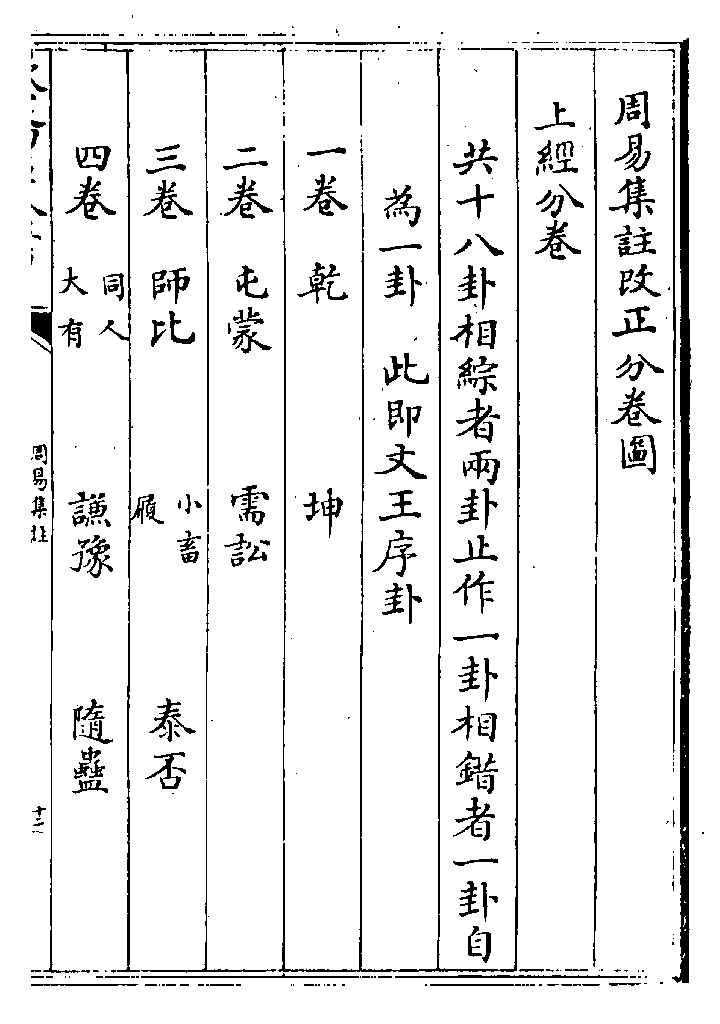 周易集註改正分卷圖
上經分卷
共十八卦相綜者兩卦止作一卦相錯者一卦自
為一卦　此即文王序卦
一卷　乾　坤
二卷　屯蒙　需訟
三卷　師比　小畜　履　泰否
四卷　同人　大有　謙豫　隨蠱
周易集註
十二